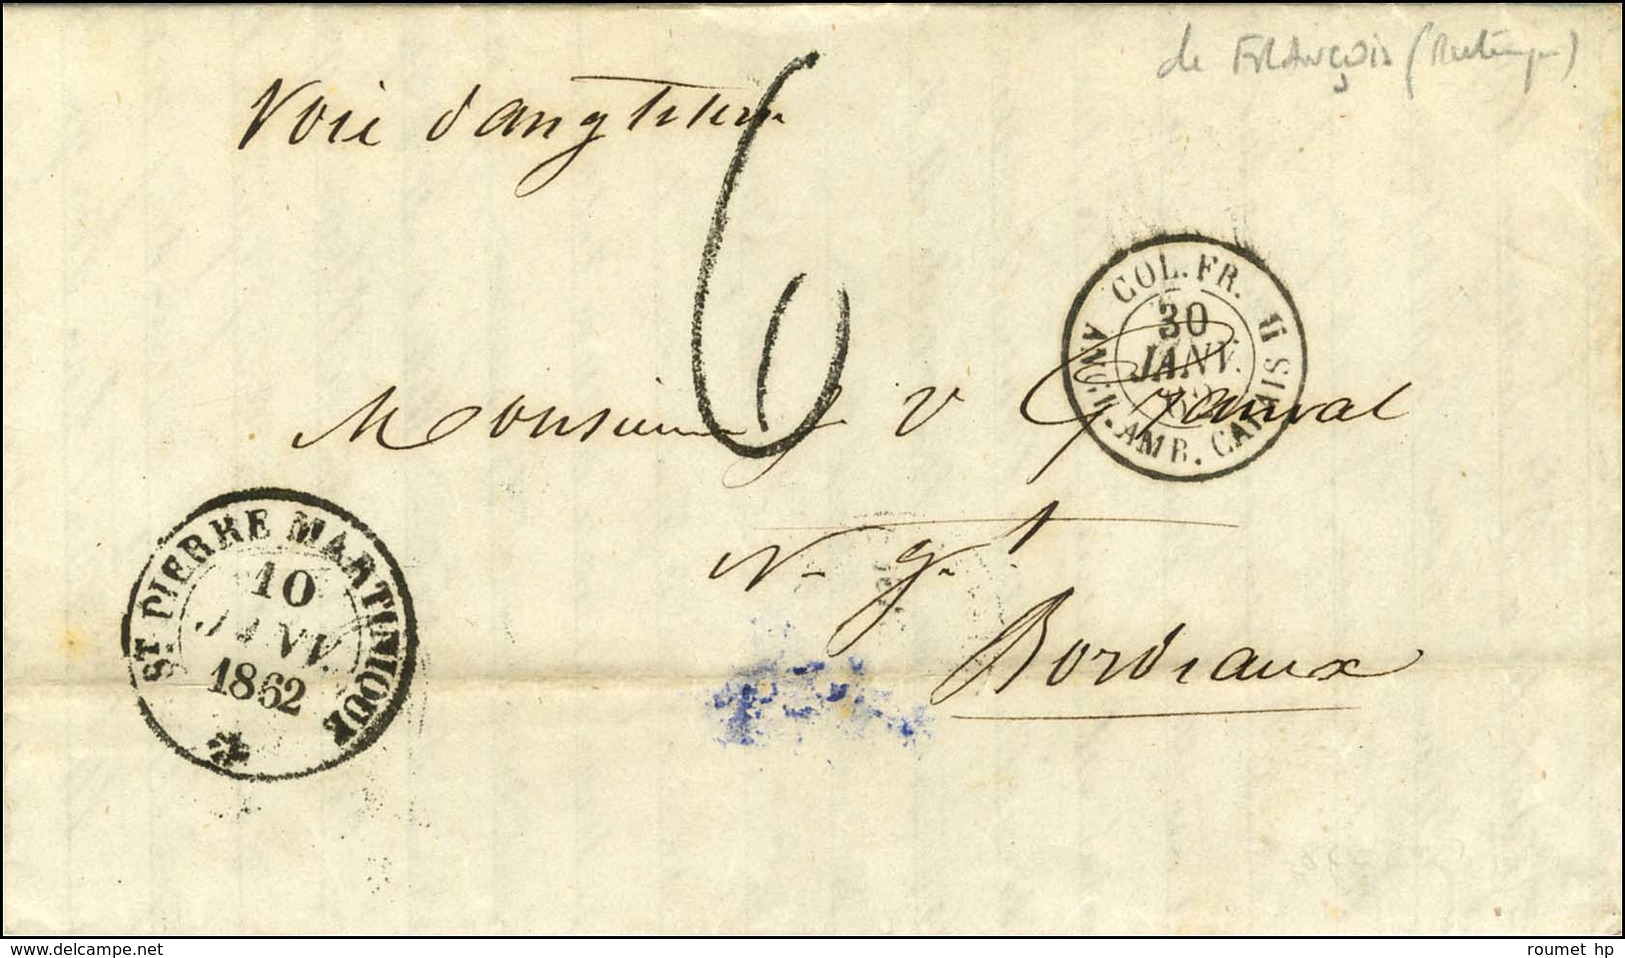 de François (Martinique)
Voie d'angleterre
6
COL. FR.
ANGL. AMB. CALAIS G
30
JANV.
62
Monsieur J V Granval
N-g-t
Bordeaux
ST PIERRE MARTINIQUE
10
JANV.
1862
*
www.delcampe.net
roumet hp